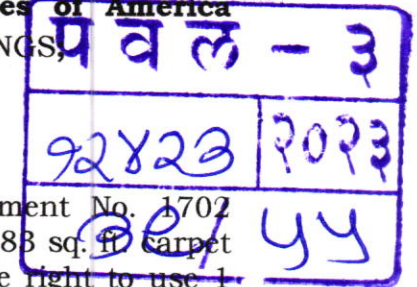 es of America
NGS,
पवल - ३
१२४२३ २०२३
ment No. 1702
83 sq. ft. carpet
३९/ ५५
e right to use 1